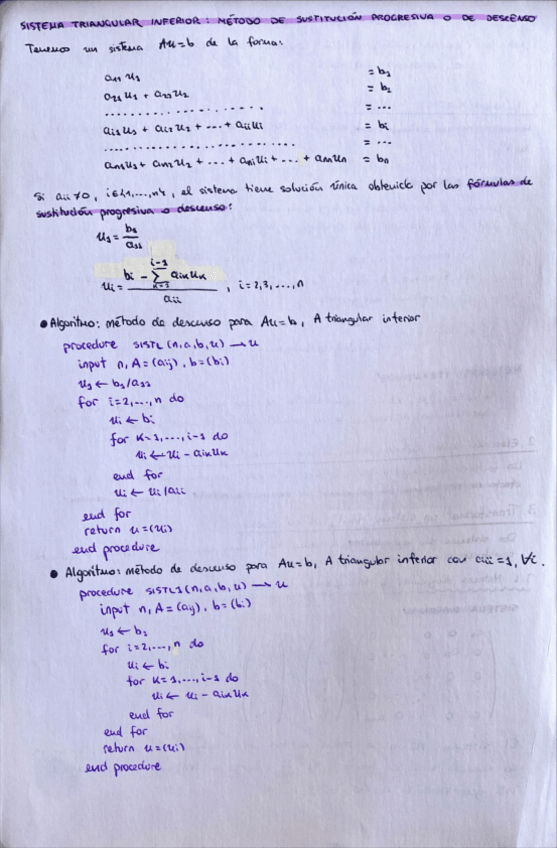 SISTEMA TRIANGULAR INFERIOR: MÉTODO DE SUSTITUCIÓN PROGRESIVA O DE DESCENSO
Tenemos un sistema Au=b de la forma:
a₁₁u₁ = b₁
a₂₁u₁ + a₂₂u₂ = b₂
..................... = ...
aᵢ₁u₁ + aᵢ₂u₂ + ... + aᵢᵢuᵢ = bᵢ
..................... = ...
aₙ₁u₁ + aₙ₂u₂ + ... + aₙᵢuᵢ + ... + aₙₙuₙ = bₙ
Si aᵢᵢ≠0, i∈{1,...,n}, el sistema tiene solución única obtenida por las fórmulas de
sustitución progresiva o descenso:
u₁ = b₁/a₁₁
uᵢ = (bᵢ - ∑_{k=1}^{i-1} aᵢₖuₖ)/aᵢᵢ , i=2,3,...,n
• Algoritmo: método de descenso para Au=b, A triangular inferior
procedure SISTL(n,a,b,u) → u
input n, A=(aij), b=(bi)
u₁ ← b₁/a₁₁
for i=2,...,n do
uᵢ ← bᵢ
for k=1,...,i-1 do
uᵢ ← uᵢ - aᵢₖuₖ
end for
uᵢ ← uᵢ/aᵢᵢ
end for
return u=(uᵢ)
end procedure
• Algoritmo: método de descenso para Au=b, A triangular inferior con aᵢᵢ=1, ∀i.
procedure SISTL1(n,a,b,u) → u
input n, A=(aij), b=(bi)
u₁ ← b₁
for i=2,...,n do
uᵢ ← bᵢ
for k=1,...,i-1 do
uᵢ ← uᵢ - aᵢₖuₖ
end for
end for
return u=(uᵢ)
end procedure